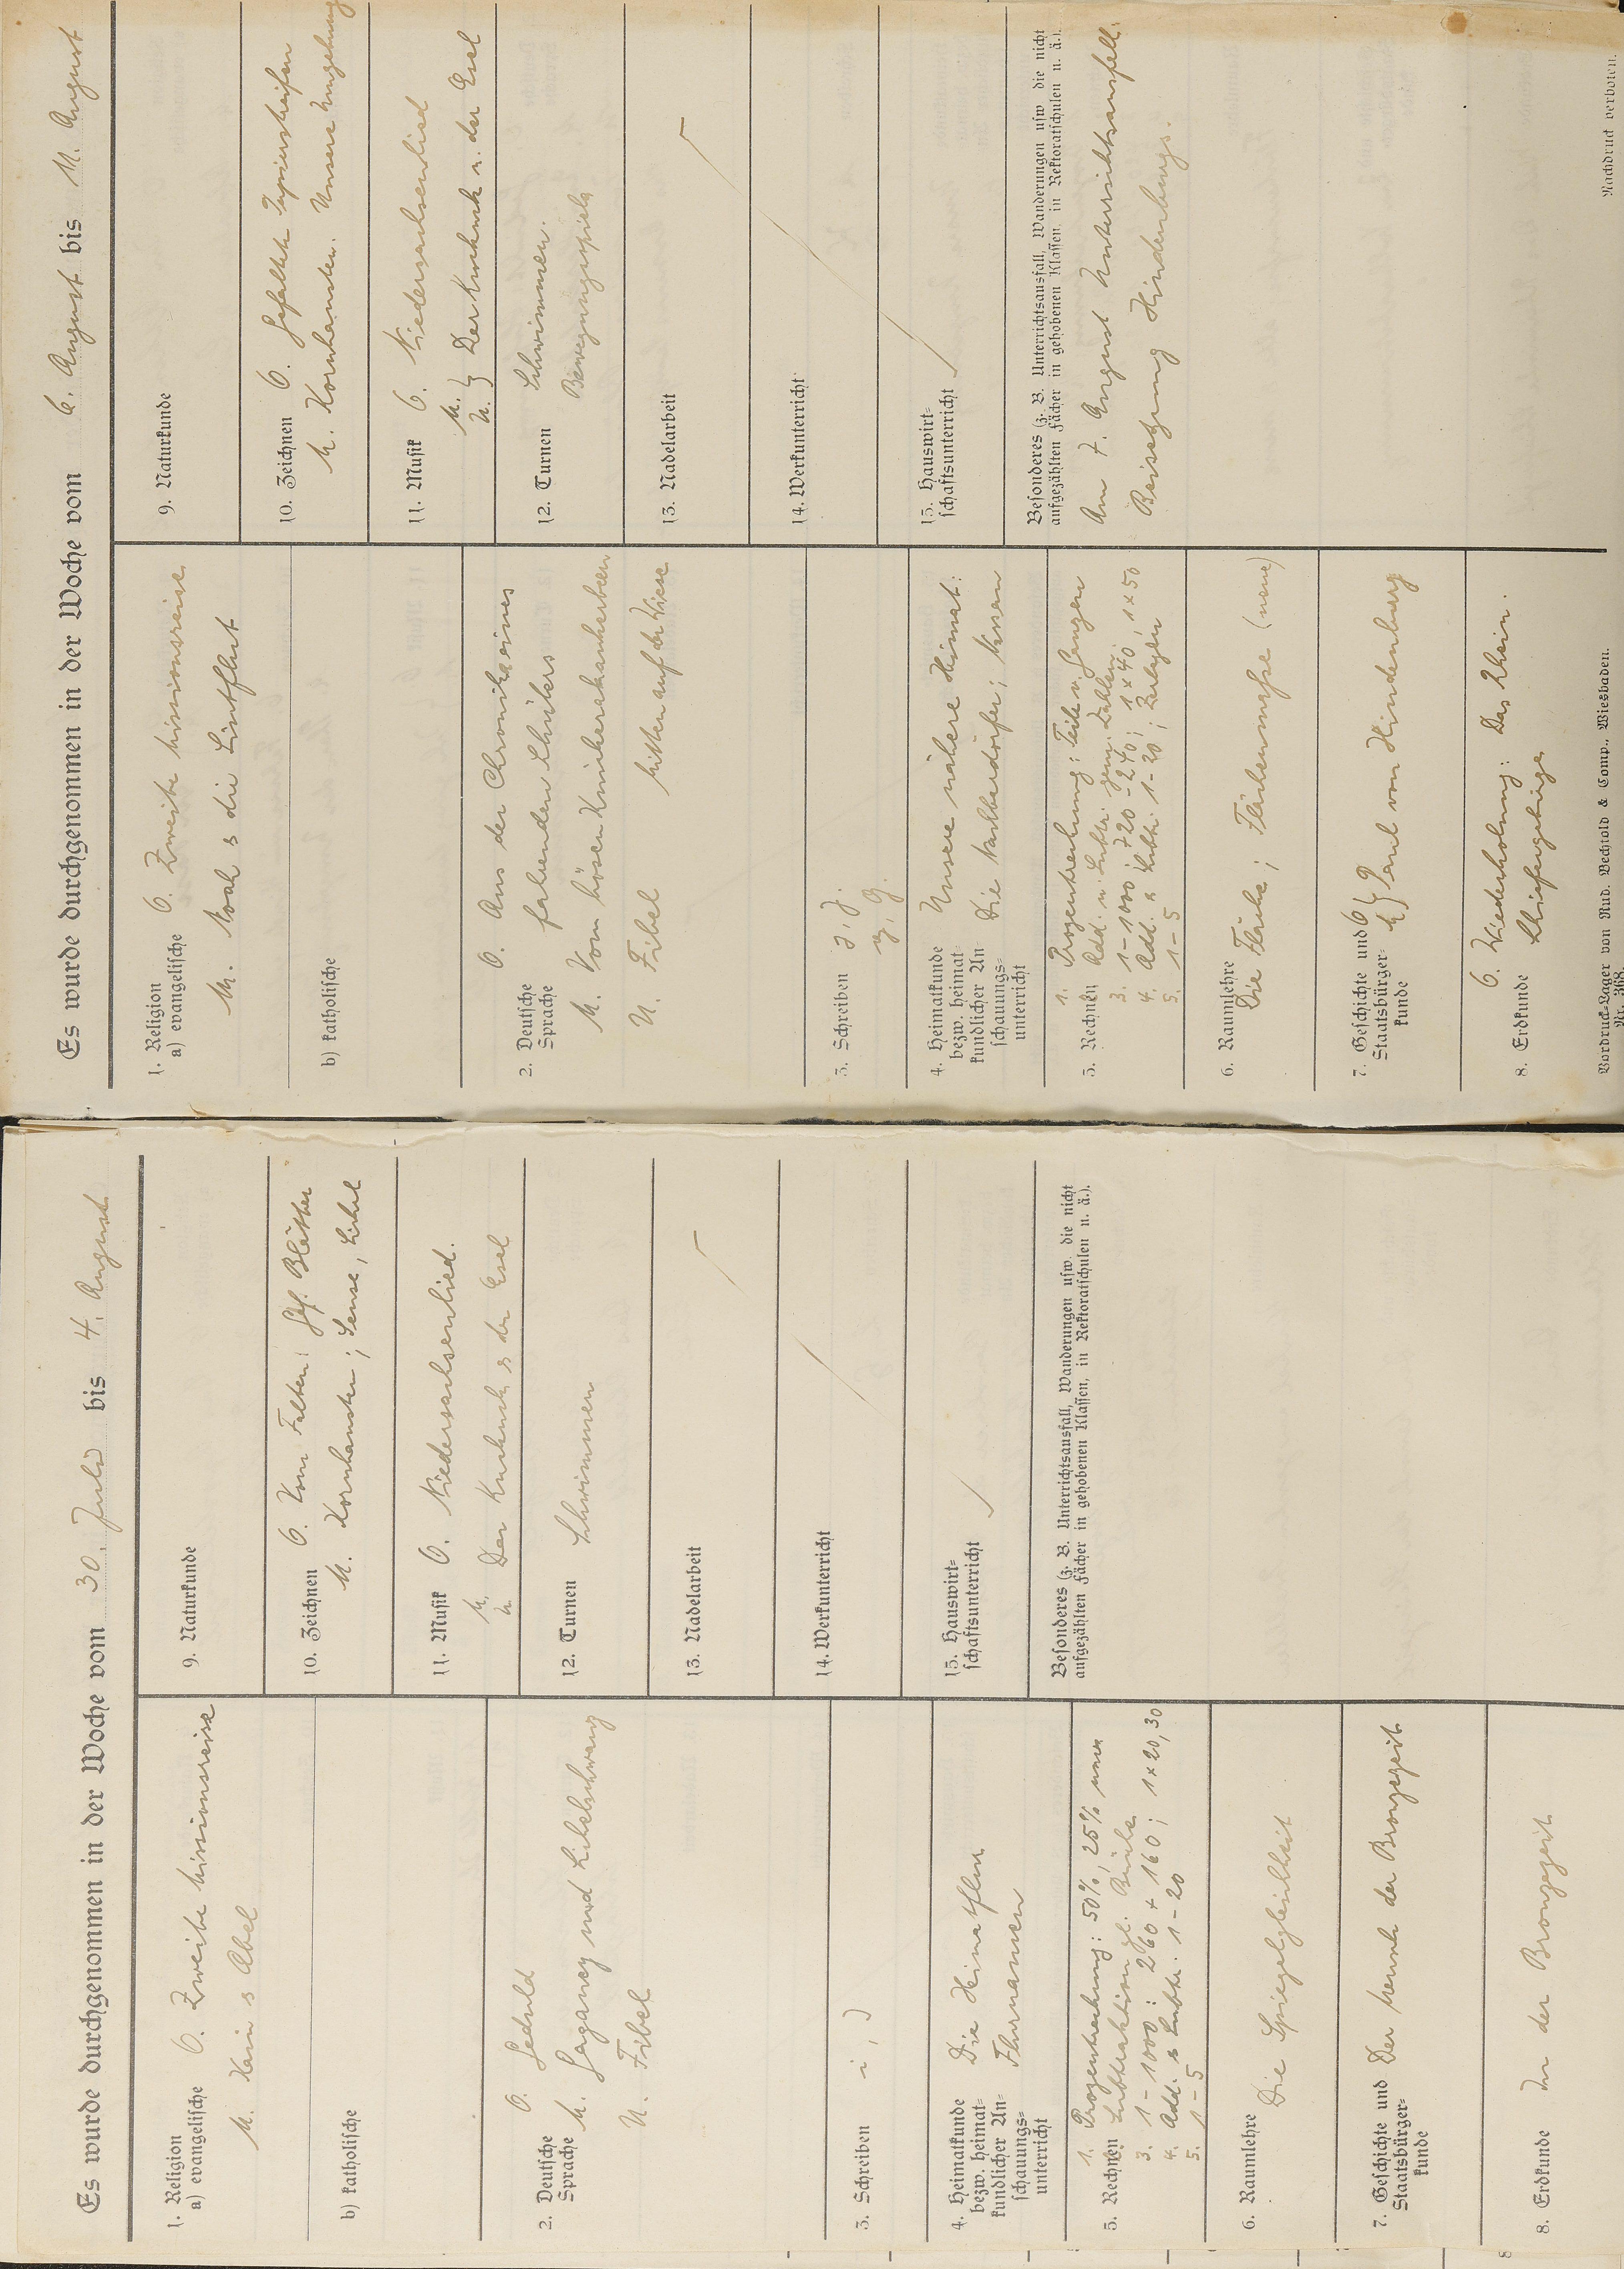 Es wurde durchgenommen in der Woche vom 30. Juli bis 4. August
1. Religion
a) evangelische O. Zweite Missionsreise
M. Kain u Abel
b) katholische
2. Deutsche
Sprache
O. Geduld
M. und
U. Fibel
3. Schreiben i, j
4. Heimatkunde
bezw. heimat-
kundlicher An-
schauungs-
unterricht
Die Heimatflur
Flurnamen
5. Rechnen
1. Prozentrechnung: 50%, 25% usw
Subtraktion gl. Brüche
3. 1-1000: 260 + 160; 1x20,30
4. Add. u Subtr. 1-20
5. 1-5
6. Raumlehre
Die Spiegelgleichheit
7. Geschichte und
Staatsbürger-
kunde
Der Mensch der Bronzezeit
8. Erdkunde In der Bronzezeit
9. Naturkunde
10. Zeichnen O. Vom Falten: Gef. Blätter
M. Kornkasten; Sense, Sichel
11. Musik O. Niedersachsenlied.
M.
U.
Der Kuckuck u der Esel
12. Turnen Schwimmen
13. Nadelarbeit
14. Werkunterricht
15. Hauswirt-
schaftsunterricht
Besonderes (z. B. Unterrichtsausfall, Wanderungen usw. die nicht
aufgezählten Fächer in gehobenen Klassen, in Rektoratschulen u. ä.).
Es wurde durchgenommen in der Woche vom 6. August bis 11. August
1. Religion
a) evangelische O. Zweite Missionsreise
M. Noah u die Sintflut
b) katholische
2. Deutsche
Sprache
O. Aus der Chronika eines
fahrenden Schülers
M. Vom bösen
U. Fibel Mitten auf der Wiese
3. Schreiben j, J.
y, Y.
4. Heimatkunde
bezw. heimat-
kundlicher An-
schauungs-
unterricht
Unsere nähere Heimat:
Die Nachbardörfer; Messen
5. Rechnen
1. Prozentrechnung: Teile v. Ganzen
Add. u. Subtr. gem. Zahlen.
3. 1-1000; 720-240; 1x40, 1x50
4. Add. u Subtr. 1-20; Zerlegen
5. 1-5
6. Raumlehre
Die Fläche; Flächenmaße (neue)
7. Geschichte und
Staatsbürger-
kunde
O
M } Paul von Hindenburg
8. Erdkunde
O. Wiederholung: Das Rhein.
Schiefergebirge
9. Naturkunde
10. Zeichnen O. Gefaltete Papierstreifen
M. Kornkasten. Unsere Umgebung
11. Musik O. Niedersachsenlied
M.
U. } Der Kuckuck u. der Esel
12. Turnen Schwimmen.
Bewegungsspiele
13. Nadelarbeit
14. Werkunterricht
15. Hauswirt-
schaftsunterricht
Besonderes (z. B. Unterrichtsausfall, Wanderungen usw die nicht
aufgezählten Fächer in gehobenen Klassen, in Rektoratschulen u. ä.).
Am 7. August Unterrichtsausfall:
Beisetzung Hindenburgs.
Vordruck-Lager von Rud. Bechtold & Comp., Wiesbaden.
Nr. 368.
Nachdruck verboten.